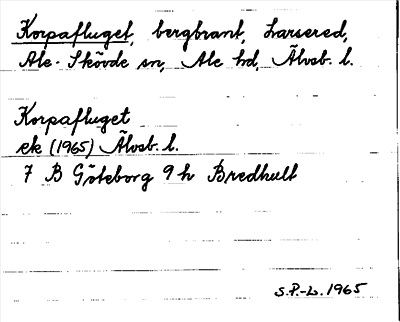 Korpafluget, bergbrant, Larsered,
Ale-Skövde sn, Ale hd, Älvsb. l.
Korpafluget
ek (1965) Älvsb. l.
7 B Göteborg 9 h Bredhult
S.P.-L. 1965